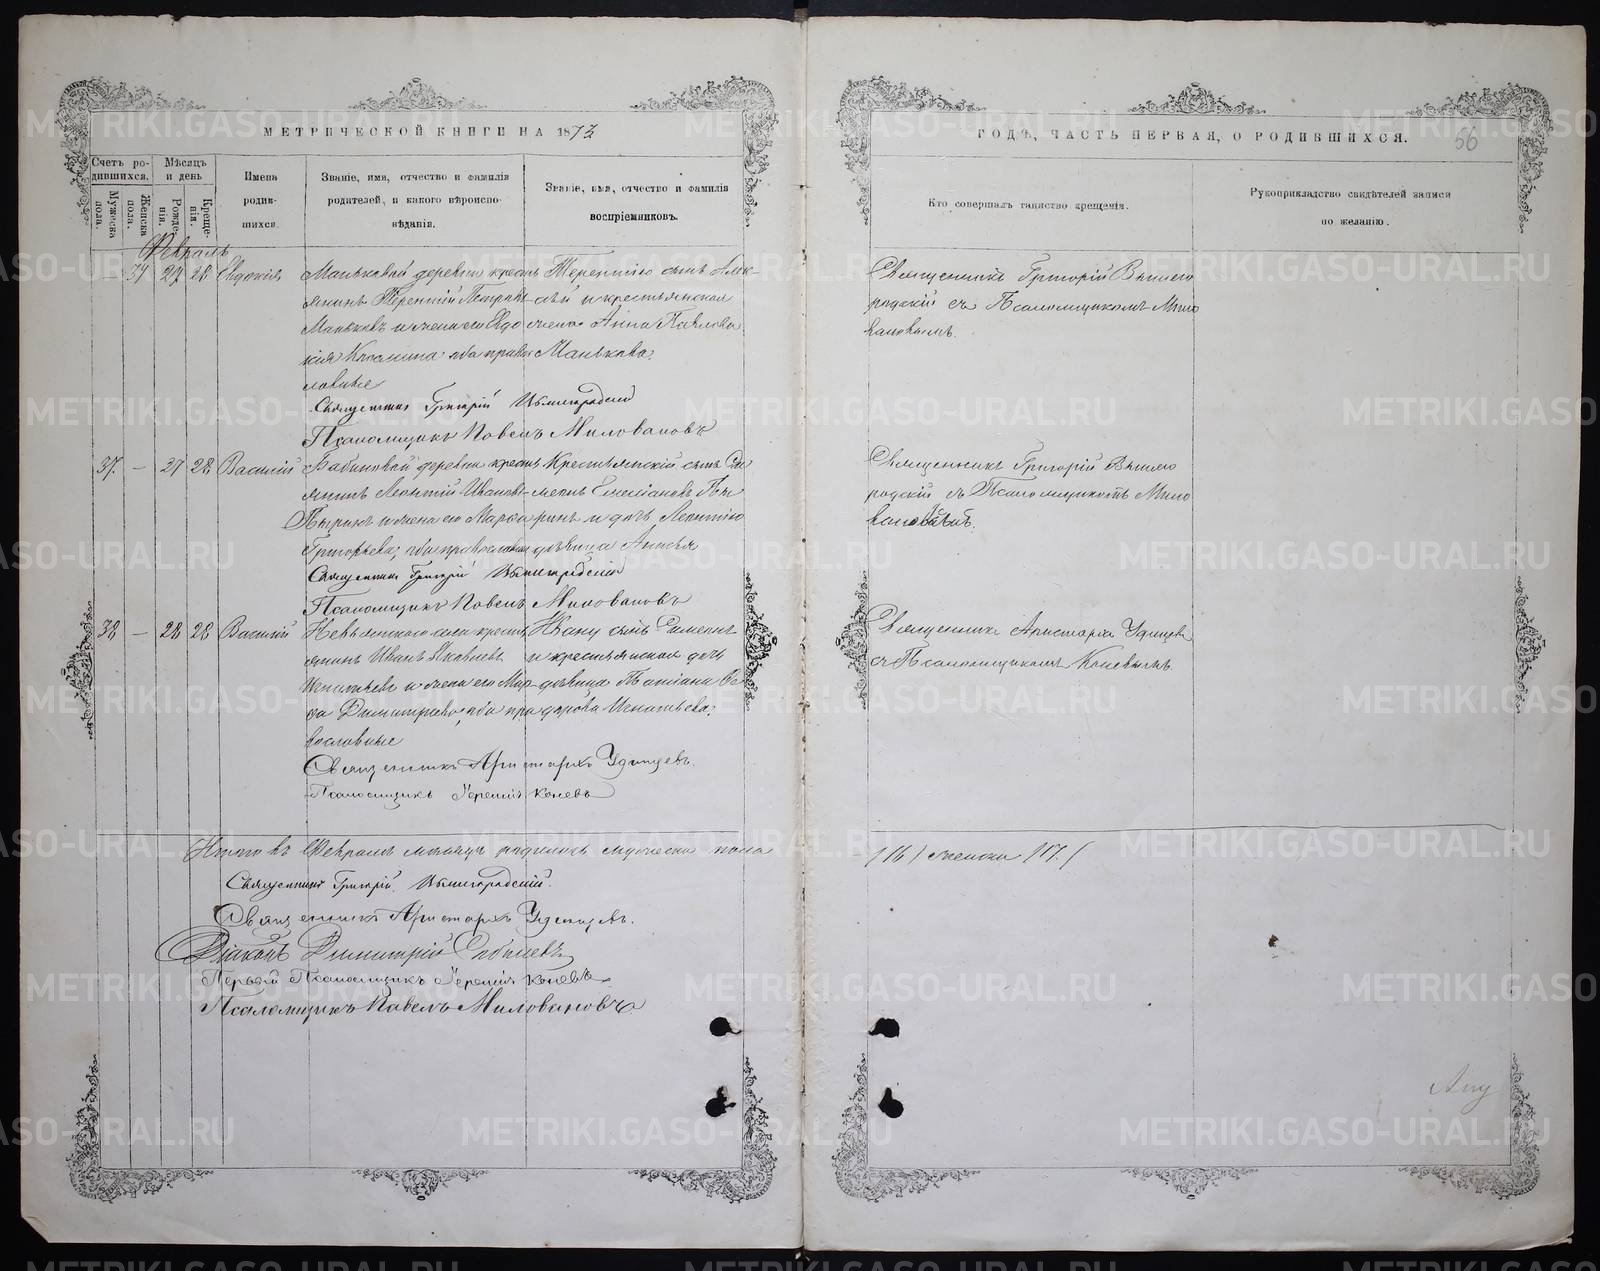 МЕТРИЧЕСКОЙ КНИГИ НА 1873
ГОДЪ, ЧАСТЬ ПЕРВАЯ, О РОДИВШИХСЯ.
56
Счетъ ро-
дившихся.
Мужеска пола.
Женска пола.
Мѣсяцъ
и день
Рожде-
нія.
Креще-
нія.
Имена
родив-
шихся.
Званіе, имя, отчество и фамилія
родителей, и какого вѣроиспо-
вѣданія.
Званіе, имя, отчество и фамилія
воспріемниковъ.
Кто совершалъ таинство крещенія.
Рукоприкладство свидѣтелей записи
по желанію.
Февраль
27 28 Евдокія
Маньковой деревни крестъ
янинъ Терентій Петровъ
Маньковъ и жена его Евдо
кія Козмина оба право
славные
Терентію сынъ Алек-
сѣй и крестьянская
жена Анна Павлова
Манькова.
Священникъ Григорій Вышегородскій съ Псаломщикомъ Мило
вановымъ.
Священникъ Григорій
Псаломщикъ Павелъ Миловановъ
37. — 27 28 Василій
Бабиновой деревни крестъ
янинъ Леонтій Ивановъ
Пыринъ и жена его Марѳа
Григорьева, оба православн
Крестьянскій сынъ Си
меонъ Емеліановъ Пы
ринъ и дочь Леонтію
дѣвица Анисья
Священникъ Григорій
родскій съ Псаломщикомъ Мило
вановымъ.
Священникъ Григорій
Псаломщикъ Павелъ Миловановъ
38 — 28 28 Василій
Невьянскаго села крестъ
янинъ Иванъ Яковлевъ
Игнатьевъ и жена его Мар
ѳа Димитріева, оба пра
вославные
Ивану сынъ Симеонъ
и крестьянская дочь
дѣвица Татіана Ѳе
дорова Игнатьева.
Священникъ Аристархъ Удинцевъ
съ Псаломщикомъ Коневымъ.
Священникъ Аристархъ Удинцевъ.
Псаломщикъ Іеремія Коневъ
Итого въ Февралѣ мѣсяцѣ родилось мужеска пола
/16/ женска /17./
Священникъ Григорій
Священникъ Аристархъ Удинцевъ.
Діаконъ Димитрій
Первый Псаломщикъ Іеремія Коневъ
Псаломщикъ Павелъ Миловановъ
METRIKI.GASO-URAL.RU